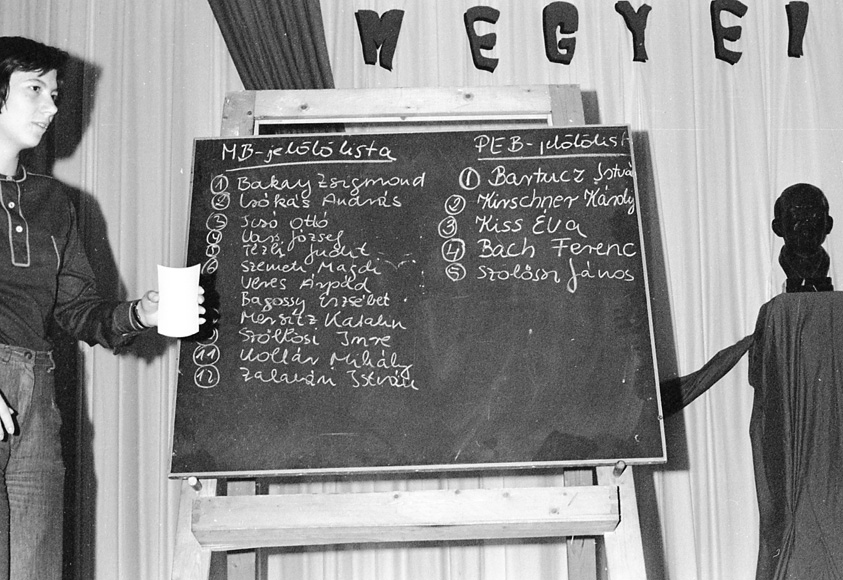 MEGYEI
MB-jelölő lista
① Bakay Zsigmond
② Csókás András
③ Jusó Ottó
④ Vass József
⑤ Judit
⑥ Szemeti Magdi
Veres Árpád
Bagossy Erzsébet
Katalin
Szöllősi Imre
⑪ Kollár Mihály
⑫ Zalavári István
PEB-jelölőlist
① Bartucz Istvá
② Kirschner Károly
③ Kiss Éva
④ Bach Ferenc
⑤ Szőlősi János